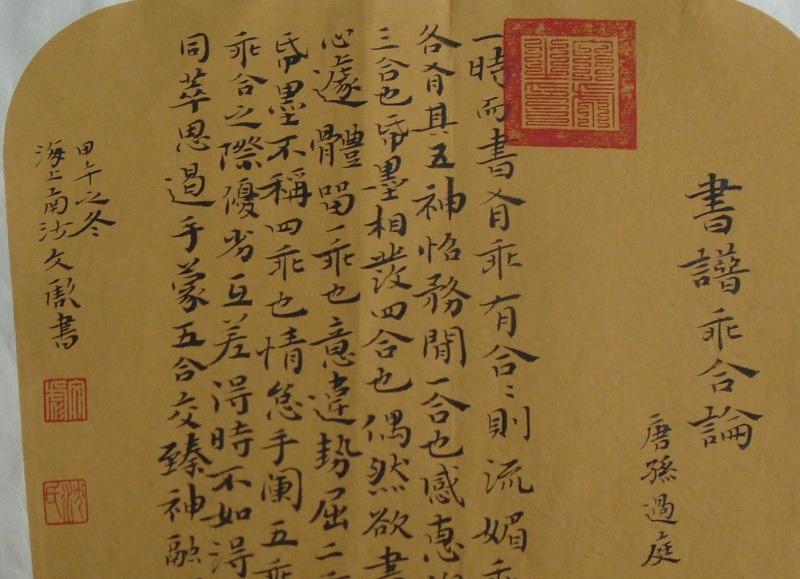 書譜乖合論
唐孫過庭
一時而書有乖有合〻則流媚乖
各有其五神怡務閒一合也感惠
三合也帋墨相發四合也偶然欲書
心遽體留一乖也意違勢屈二乖
帋墨不稱四乖也情怠手闌五乖
乖合之際優劣互差得時不如得
同萃思遏手蒙五合交臻神融
甲午之冬
海上南沙文書